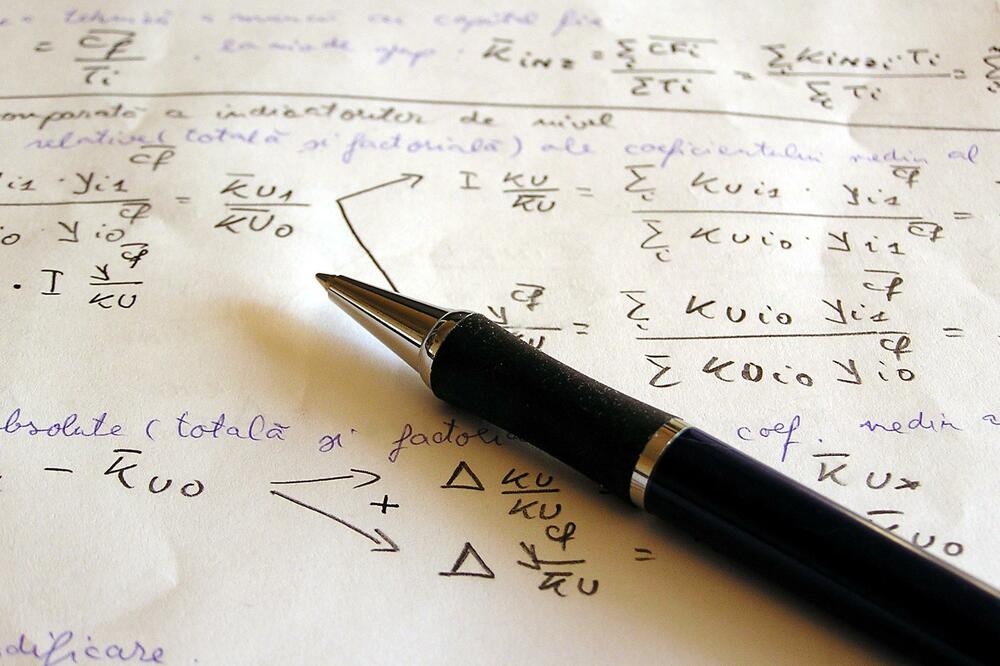 tehnică a muncii cu capital fix.
= CF̄ / T̄i · K̄ inz = Σi CF̄i / ΣTi = Σi Kinzi·Ti / Σi Ti =
omparată a indicatorilor de nivel
relative (totală și factorială) ale coeficientului mediu al
i1 · yi1^CF̄ / io yio^CF̄ = K̄U1 / K̄U0
I KU/K̄U = Σi KUi1 · yi1^CF̄ / Σi KUi0 · yi1^CF̄ =
· I y^CF̄/KU
y^CF̄/KU = Σi KUi0 yi1^CF̄ / Σ KUi0 yi0^CF̄ =
bsolute (totală și factori coef. mediu
- K̄U0
+
Δ KU/KU K̄U*
Δ y^CF̄/K̄U = U0
dificare